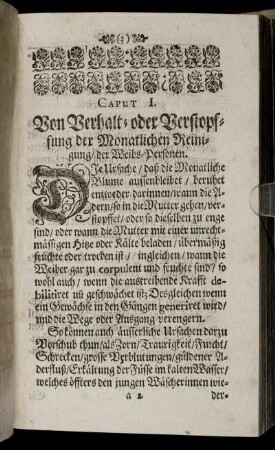 (3)
CAPUT I.
Von Verhalt- oder Verstopf-
fung der Monatlichen Reini-
gung/ der Weibs-Personen.
DIe Ursache/ daß die Monatliche
Blume aussenbleibet/ beruhet
entweder darinnen/ wann die A-
dern/ so in die Mutter gehen/ ver-
stopffet/ oder so dieselben zu enge
sind/ oder wann die Mutter mit einer unrecht-
mässigen Hitze oder Kälte beladen/ übermäßig
feuchte oder trocken ist/ ingleichen/ wann die
Weiber gar zu corpulent und feuchte sind/ so
wohl auch/ wenn die austreibende Krafft de-
bilitiret uñ geschwächet ist; Desgleichen wenn
ein Gewächse in den Gängen generiret wird/
und die Wege oder Ausgang verengern.
So können auch äusserliche Ursachen darzu
Vorschub thun/ als Zorn/ Traurigkeit/ Furcht/
Schrecken/ grosse Verblutungen/ güldener A-
derfluß/ Erkältung der Füsse im kalten Wasser/
welches öffters den jungen Wäscherinnen wie-
a 2 der-